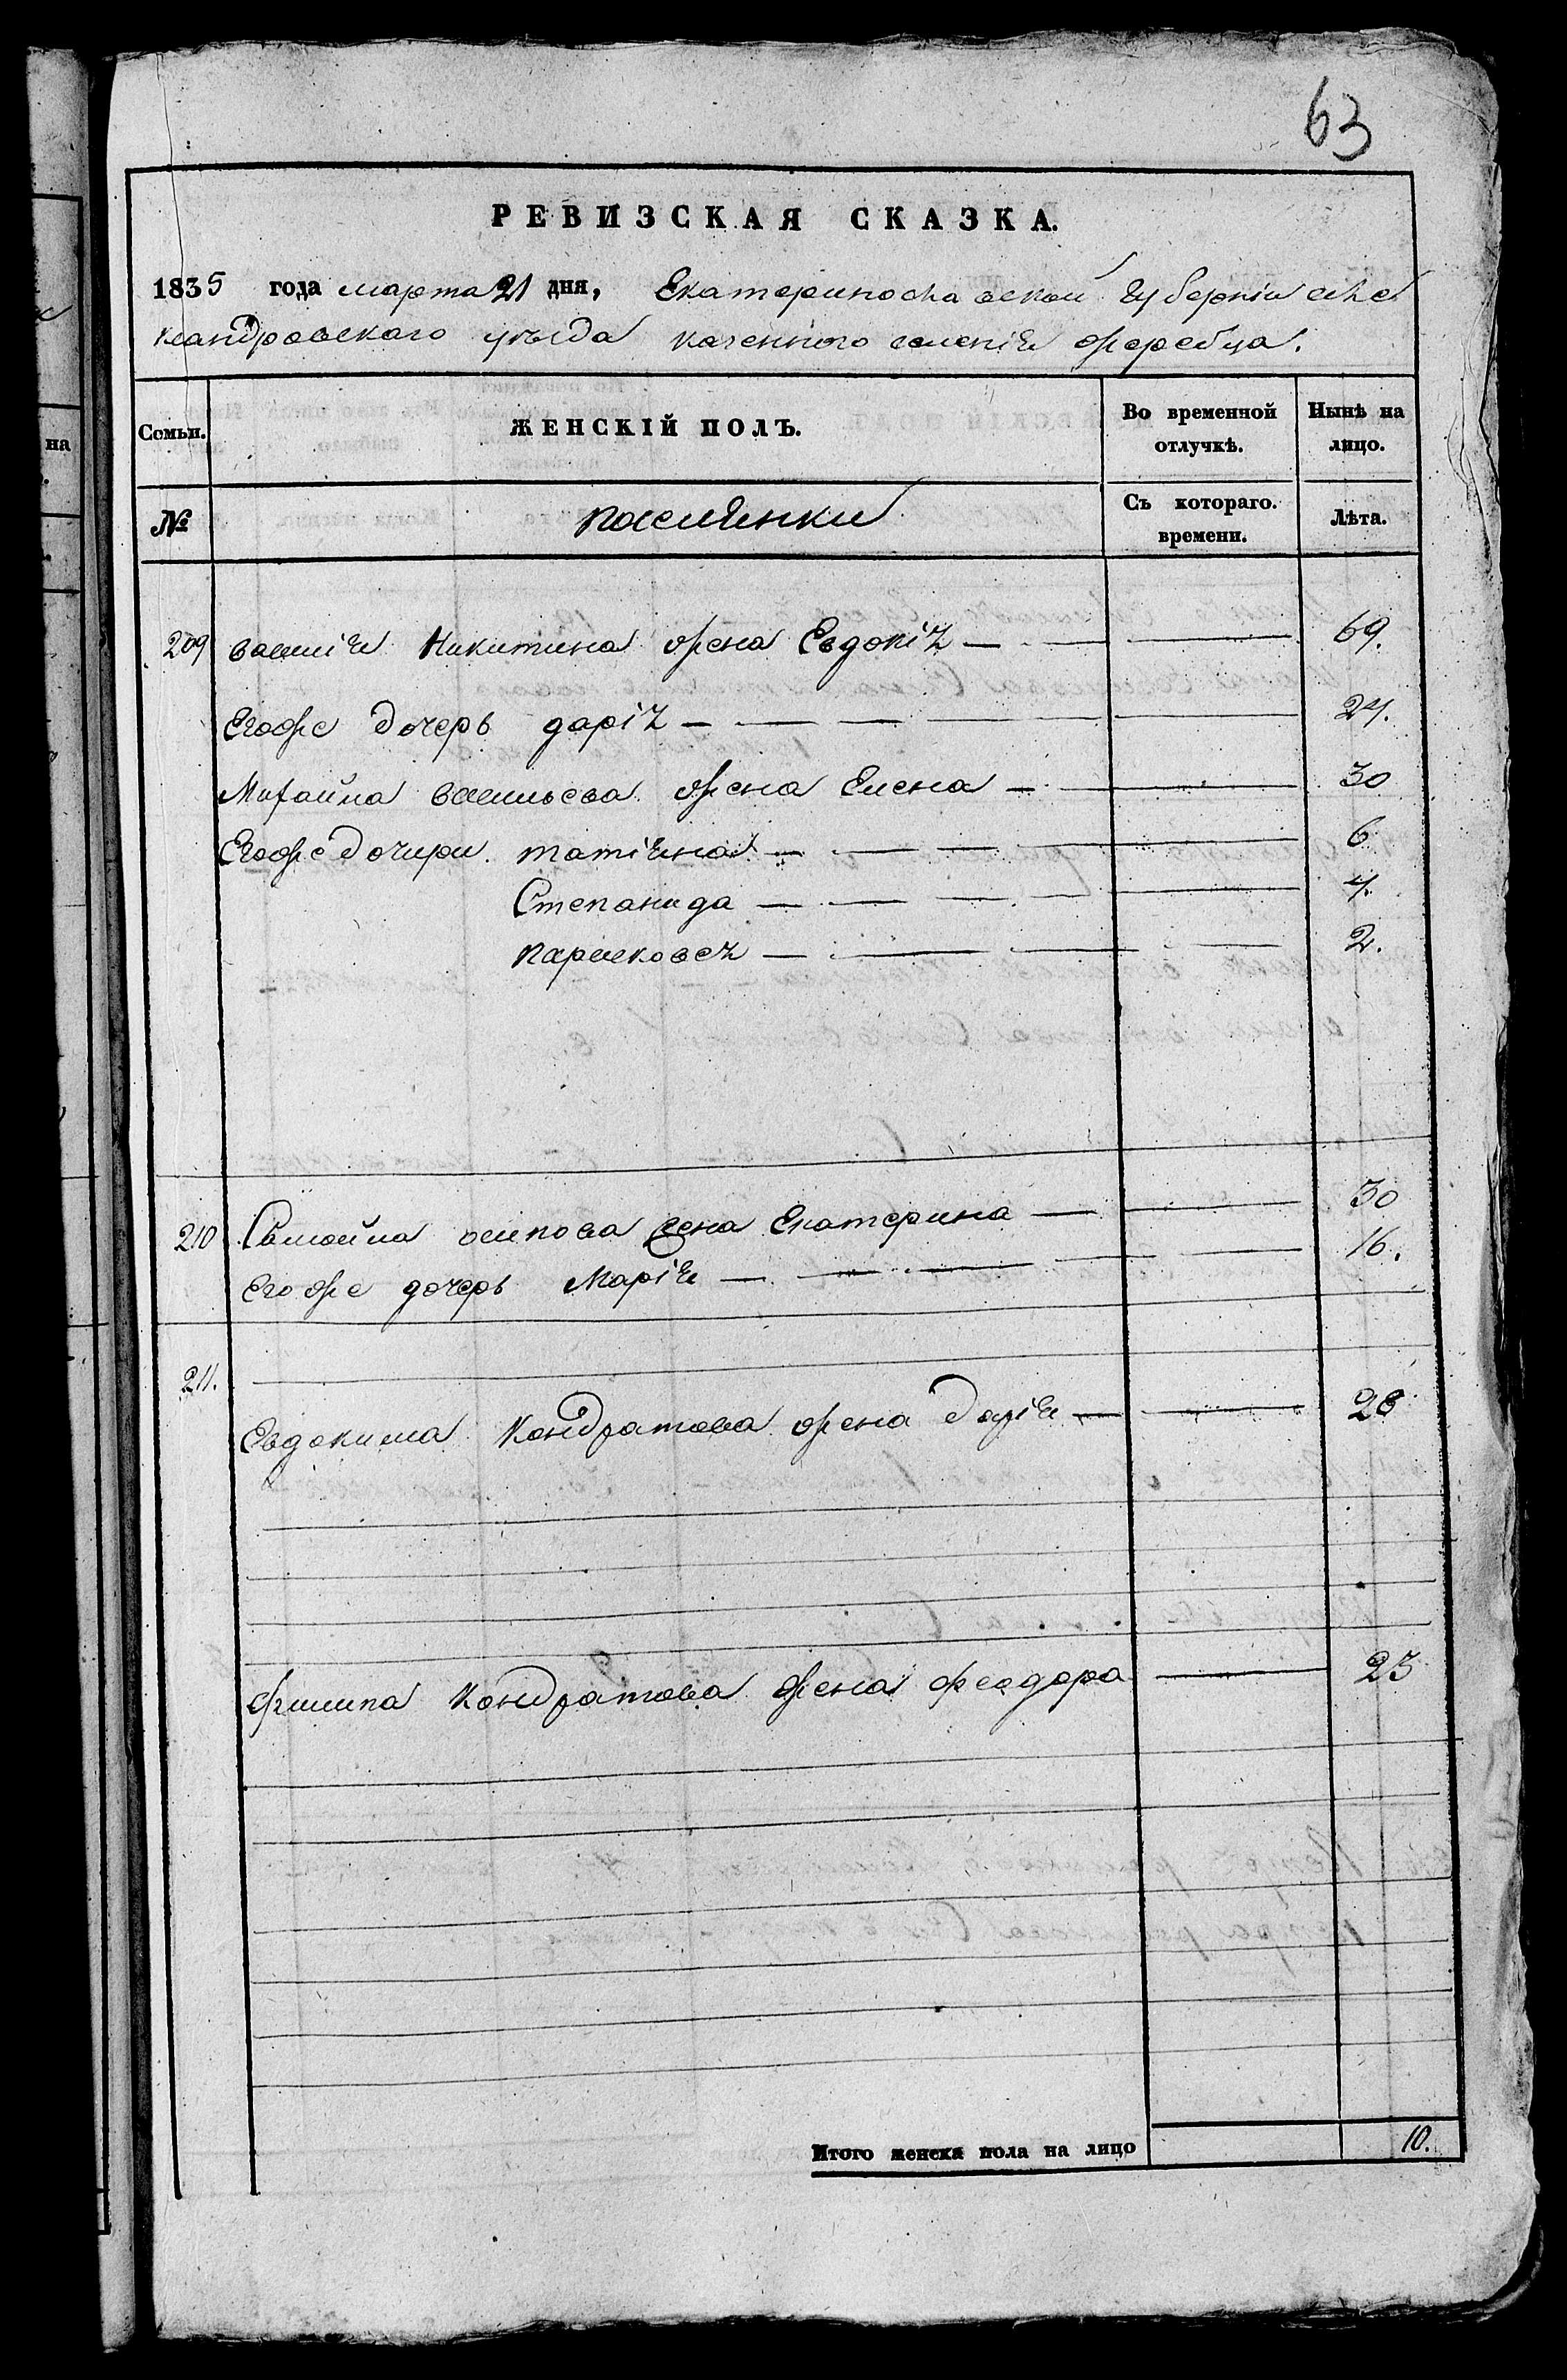 63
РЕВИЗСКАЯ СКАЗКА.
1835 года марта 21 дня, Екатеринославской губернiи Але
ксандровскаго уѣзда казенного селенiя жеребца.
Семьи. ЖЕНСКIЙ ПОЛЪ. Во временной отлучкѣ. Нынѣ на лицо.
№ поселянки Съ котораго. времени. Лѣта.
209 василiя Никитина жена Евдокiя — — 69.
Егоже дочерь дарiя — — — 24.
Михайла васильева жена Елена — — 30
Егоже дочири татiяна — — — 6
Степанида — — — 4.
парасковея — — — 2.
210 Самойла осипова жена Екатерина — — 30
Егоже дочерь Марiя — — — 16.
211.
Евдокима Кондратова жена дарiя — — 28
филипа Кондратова жена феодора — 23
Итого женска пола на лицо 10.
на